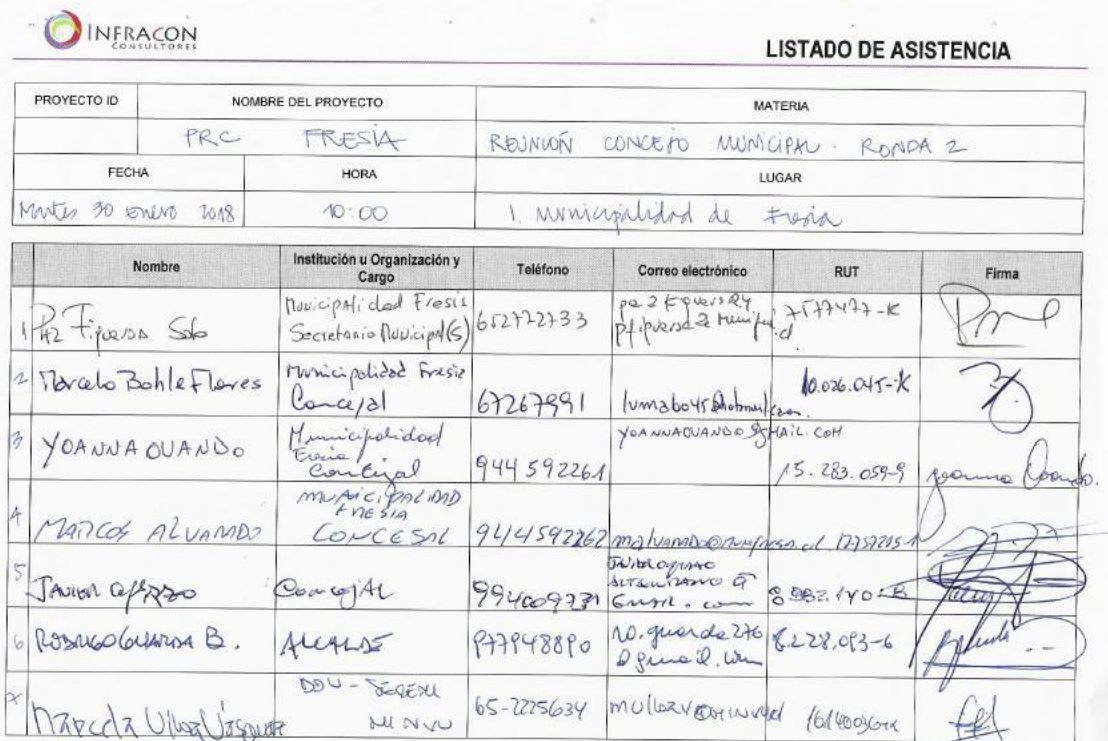 INFRACON
CONSULTORES
LISTADO DE ASISTENCIA
PROYECTO ID NOMBRE DEL PROYECTO MATERIA
PRC FRESIA REUNIÓN CONCEJO MUNICIPAL. RONDA 2
FECHA HORA LUGAR
Martes 30 enero 2018 10:00 I. Municipalidad de Fresia
Nombre Institución u Organización y Cargo Teléfono Correo electrónico RUT Firma
1 Paz Figueroa Soto Municipalidad Fresia Secretario Municipal (S) 652772733 7577477-K
2 Marcelo Bohle Flores Municipalidad Fresia Concejal 67267991 10.026.045-K
3 YOANNA OVANDO Municipalidad Fresia Concejal 944592261 15.283.059-9 Yoanna Ovando.
4 MARCOS ALVARADO MUNICIPALIDAD FRESIA CONCEJAL 9444592262
5 JAVIER Concejal 994009731
6 RODRIGO GUARDA B. ALCALDE 977948890 6.228.093-6
Marcela Ulloa Vásquez DDU - SEREMI MINVU 65-2225634